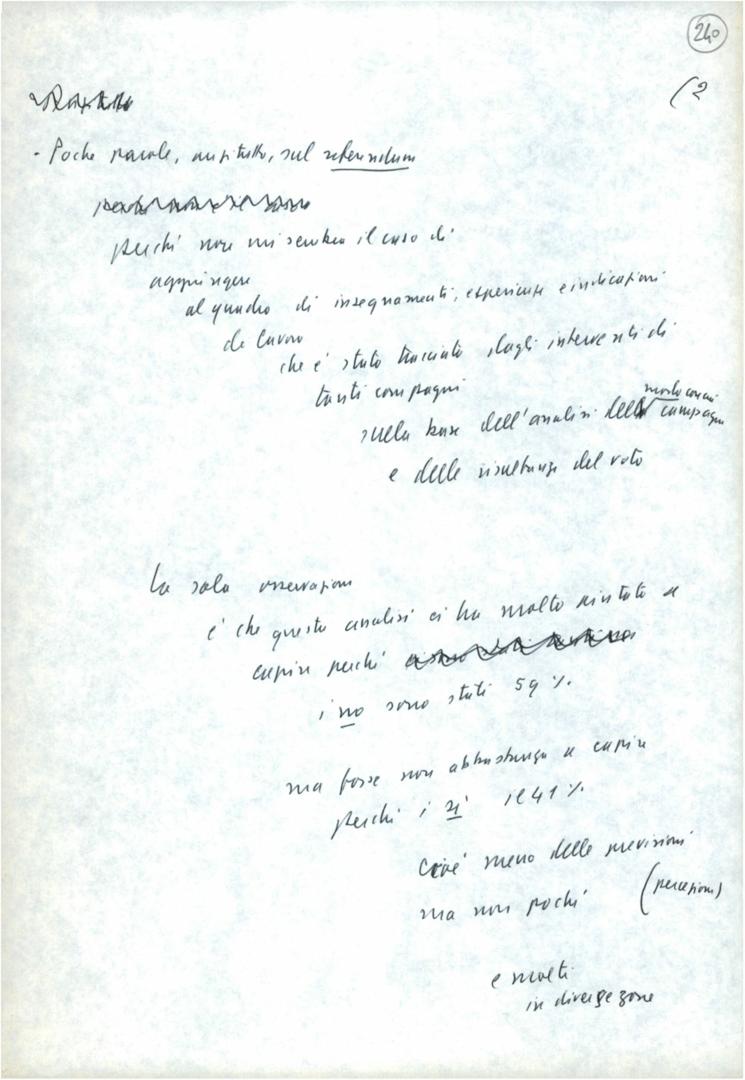 240
(2
- Poche parole, anzitutto, sul referendum
perché non mi sembra il caso di
aggiungere
al quadro di insegnamenti, esperienze e indicazioni
di lavoro
che è stato tracciato dagli interventi di
tanti compagni
sulla base dell'analisi del modo con cui campagna
e delle risultanze del voto
La sola osservazione
è che questa analisi ci ha molto aiutato a
capire perché
i no sono stati 59 %.
ma forse non abbastanza a capire
perché i sì il 41 %.
cioè meno delle previsioni
ma non pochi (percezioni)
e molti
in diverse zone